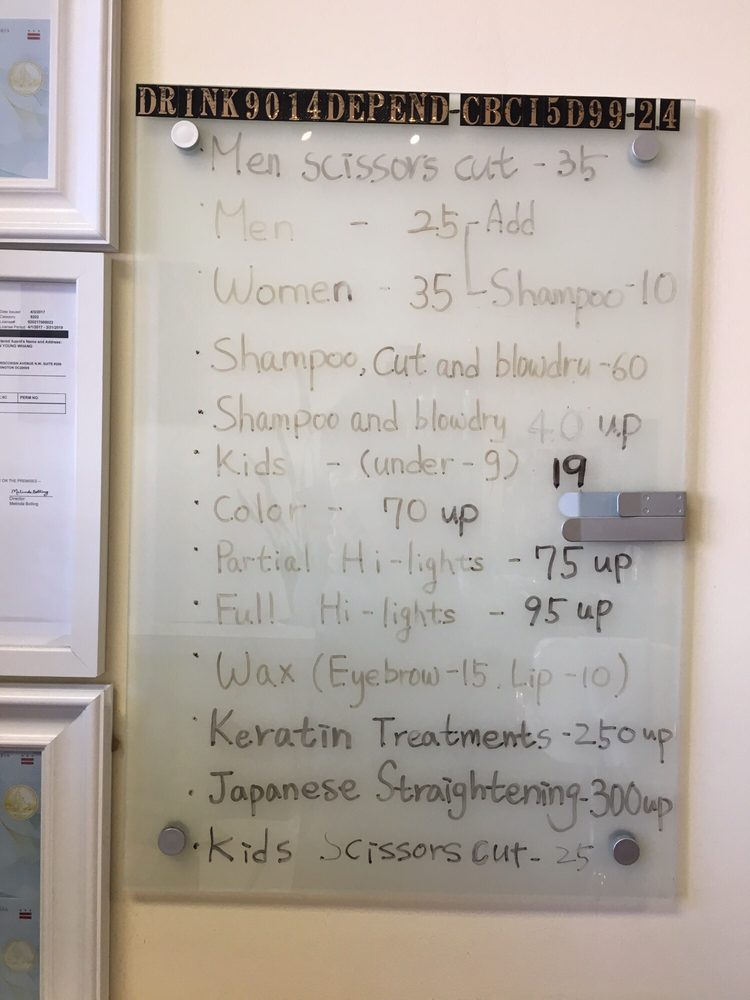 DRINK9014DEPEND-CBCI5D99-24
· Men scissors cut - 35
· Men - 25 - Add
· Women - 35 - Shampoo - 10
· Shampoo, Cut and blowdry - 60
· Shampoo and blowdry 40 up
· Kids - (under - 9) 19
· Color - 70 up
· Partial Hi-lights - 75 up
· Full Hi-lights - 95 up
· Wax (Eyebrow - 15, Lip - 10)
· Keratin Treatments - 250 up
· Japanese Straightening - 300 up
· Kids Scissors cut - 25
Date Issued: 4/3/2017
Category:
License#:
License Period: 4/1/2017 - 3/31/2019
YOUNG WHANG
WISCONSIN AVENUE N.W. SUITE
PERM NO.
ON THE PREMISES
Director:
Melinda Bolling